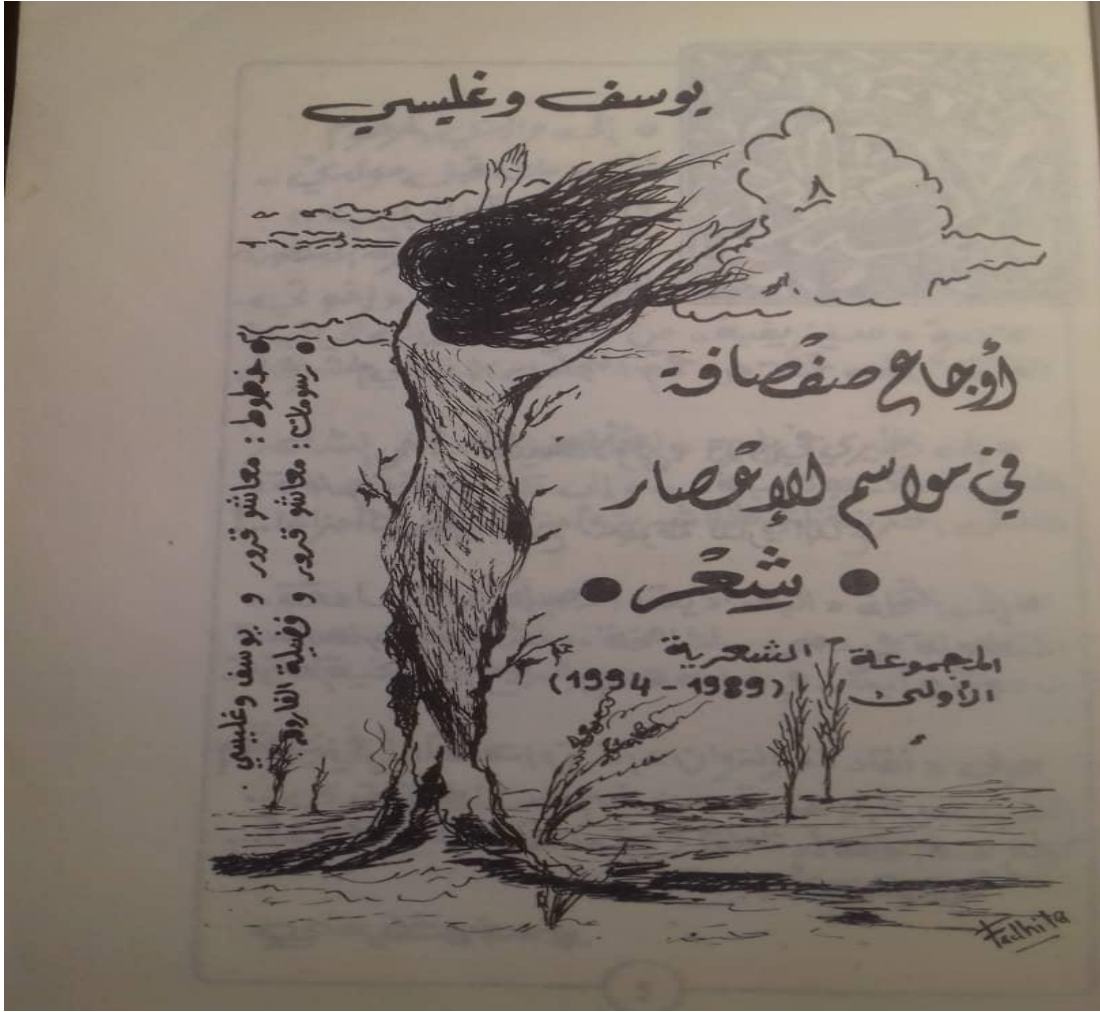 يوسف وغليسي
أوجاع صفصافة
في مواسم الإعصار
• شِعْر •
المجموعة الشعرية
الأولى (1989 - 1994)
• خطوط : معاشو قرور و يوسف وغليسي .
• رسومات : معاشو قرور و فضيلة الفاروق
Fadhila